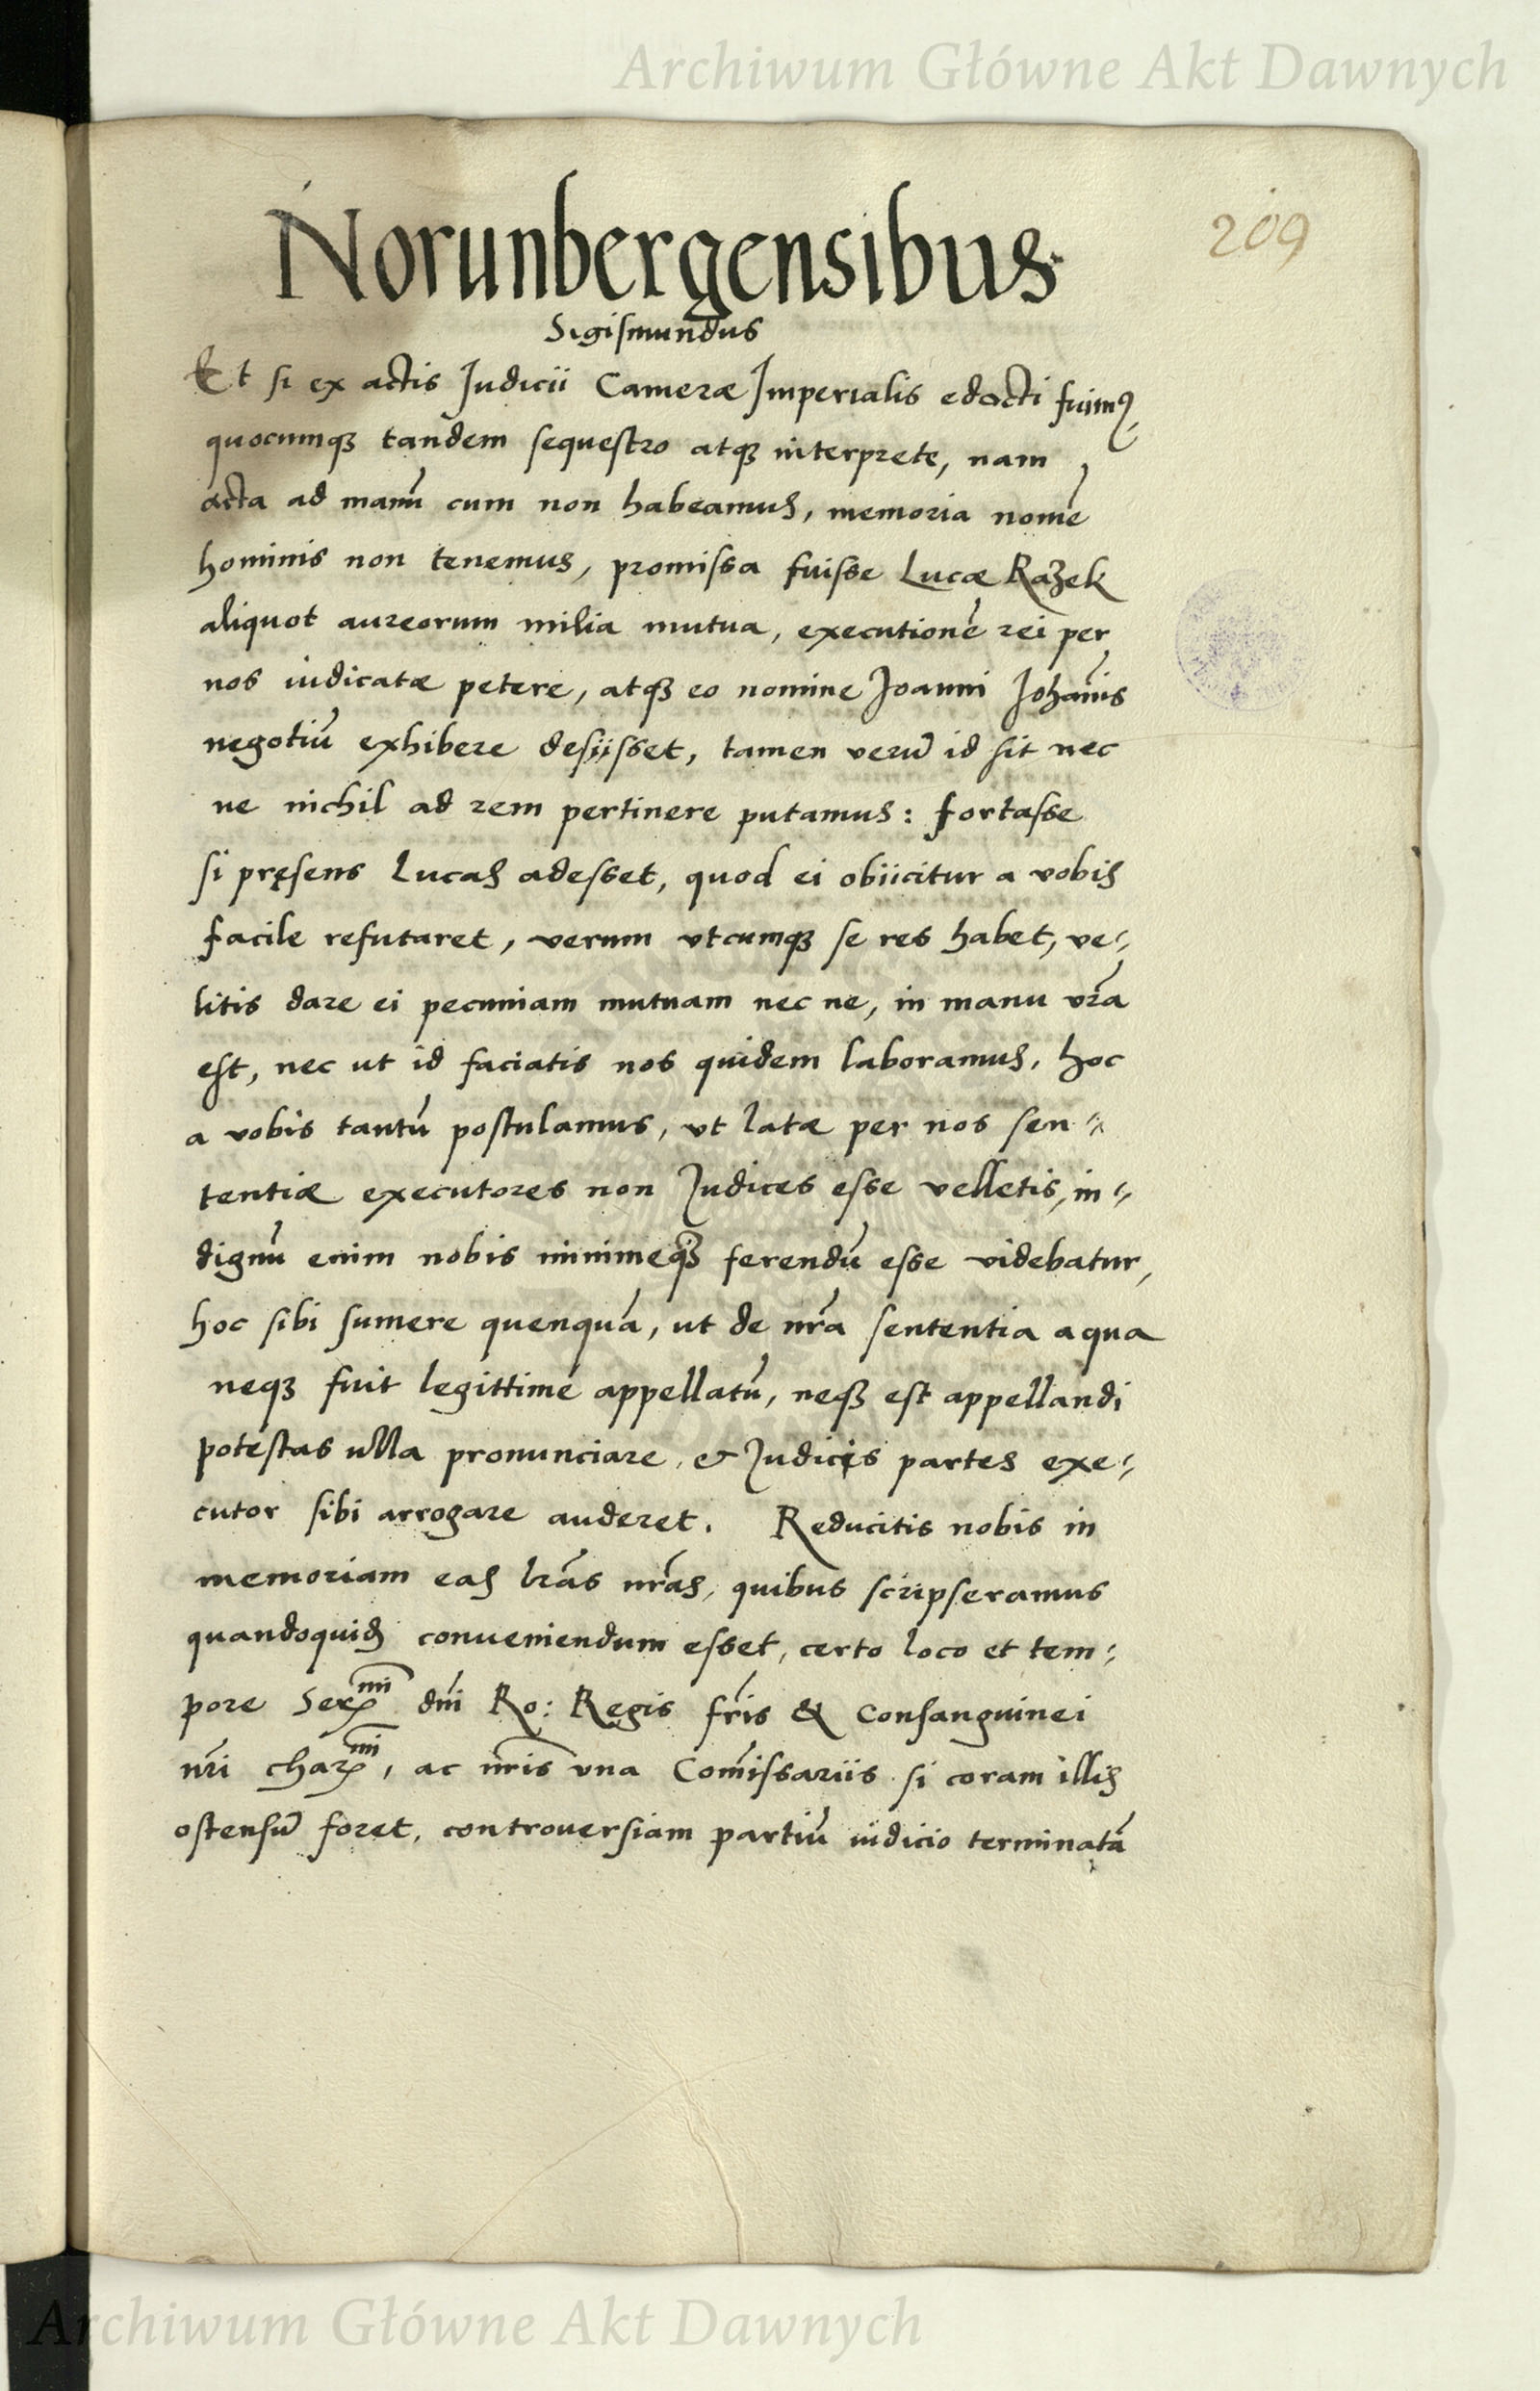 Archiwum Główne Akt Dawnych
209
Norunbergensibus
Sigismundus
Et si ex actis Judicii Cameræ Imperialis edocti fuimꝰ
quocumqꝫ tandem sequestro atqꝫ interprete, nam
acta ad manū cum non habeamus, memoria nomē
hominis non tenemus, promissa fuisse Lucæ Razek
aliquot aureorum milia mutua, executionē rei per
nos iudicatæ petere, atqꝫ eo nomine Joanni Johānis
negotiū exhibere desiisset, tamen verū id sit nec
ne nichil ad rem pertinere putamus: fortasse
si pręsens Lucas adesset, quod ei obiicitur a vobis
facile refutaret, verum vtcumqꝫ se res habet, ve-
litis dare ei pecuniam mutuam nec ne, in manu vrā
est, nec ut id faciatis nos quidem laboramus, hoc
a vobis tantū postulamus, vt latæ per nos sen-
tentiæ executores non Judices esse velletis, in-
dignū enim nobis minimeqꝫ ferendū esse videbatur,
hoc sibi sumere quenquā, ut de nrā sententia a qua
neqꝫ fuit legittime appellatū, neqꝫ est appellandi
potestas ulla pronunciare, et Judicis partes exe-
cutor sibi arrogare auderet. Reducitis nobis in
memoriam eas lrās nrās, quibus scripseramus
quandoquid conveniendum esset, certo loco et tem-
pore Ser^mi dni Ro: Regis fris & Consanguinei
nri char^mi, ac nris vna Comissariis si coram illis
ostensū foret, controversiam partiū iudicio terminatā
Archiwum Główne Akt Dawnych